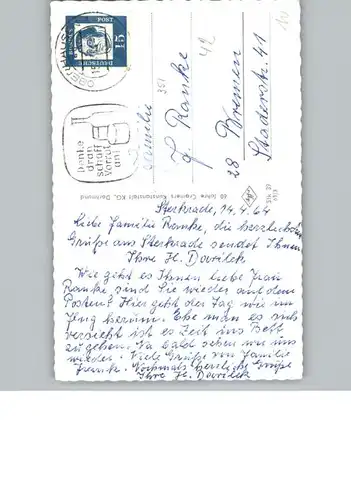 OBERHAUSEN
DEUTSCHE
15
Denke
dran
schaff
Vorrat
an!
Familie
J. Ranke
28 Bremen
Staderstr. 41
60 Jahre Cramers Kunstanstalt KG, Dortmund
Sterkrade, 14.4.64
Liebe Familie Ranke, die herzlichsten
Grüße aus Sterkrade sendet Ihnen
Ihre H.
Wie geht es Ihnen liebe Frau
Ranke sind Sie wieder auf dem
Posten? Hier geht der Tag wie im
Flug herum. Ehe man es sich
versieht ist es Zeit ins Bett
zu gehen. Na bald sehen wir uns
wieder. Viele Grüße von Familie
Frank. Nochmals herzliche Grüße
Ihre H.